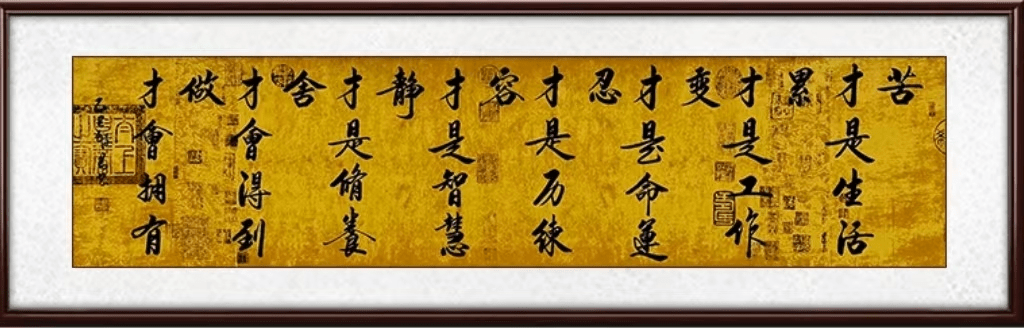 苦
才是生活
累
才是工作
变
才是命運
忍
才是历練
容
才是智慧
静
才是脩養
舍
才會得到
做
才會拥有